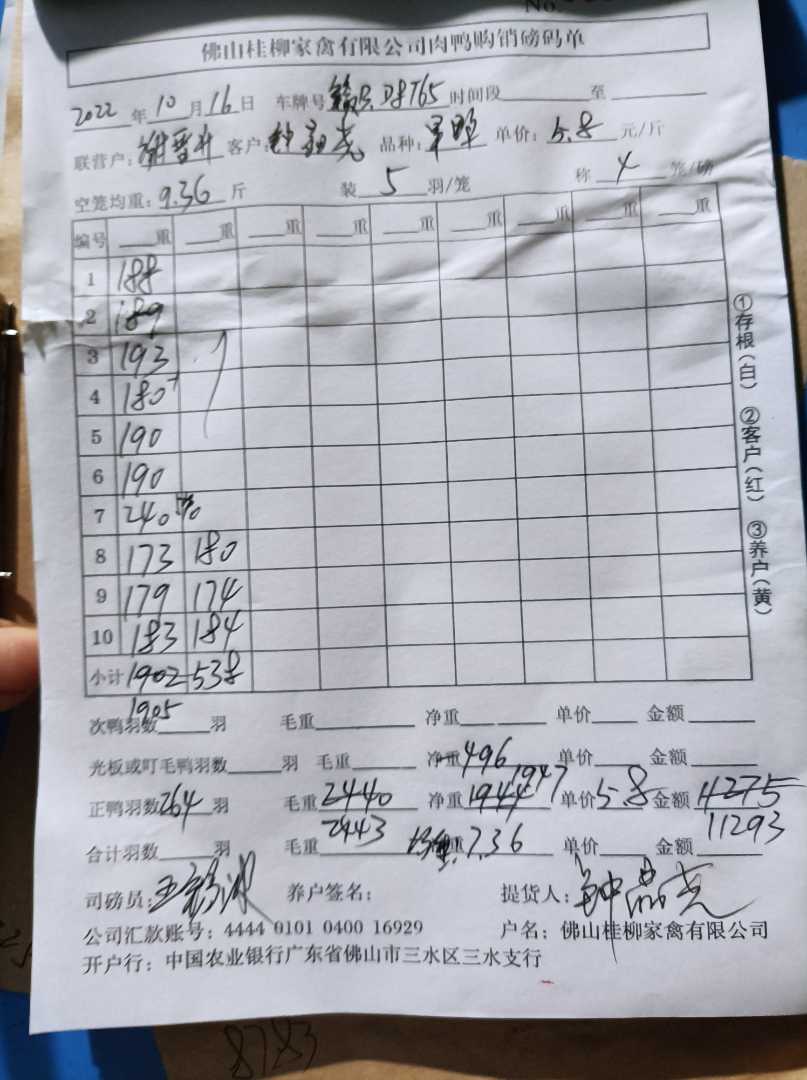 No.
佛山桂柳家禽有限公司肉鸭购销磅码单
2022 年 10 月 16 日 车牌号 D8T65 时间段 至
联营户: 谢晋升 客户: 钟 尧 品种: 单价: 5.8 元/斤
空笼均重: 9.36 斤 装 5 羽/笼 称 4 笼/磅
编号 重 重 重 重 重 重 重 重 重
1 188
2 189
3 193
4 180
5 190
6 190
7 240
8 173 180
9 179 174
10 183 184
小计 1902 538
1905
次鸭羽数 羽 毛重 净重 单价 金额
光板或叮毛鸭羽数 羽 毛重 净重 -496 单价 金额
1947
正鸭羽数 264 羽 毛重 2440 净重 1944 单价 5.8 金额 11275
2443 11293
合计羽数 羽 毛重 均重 7.36 单价 金额
司磅员: 王 养户签名: 提货人: 钟 尧
公司汇款账号: 4444 0101 0400 16929 户名: 佛山桂柳家禽有限公司
开户行: 中国农业银行广东省佛山市三水区三水支行
①存根(白) ②客户(红) ③养户(黄)
8783